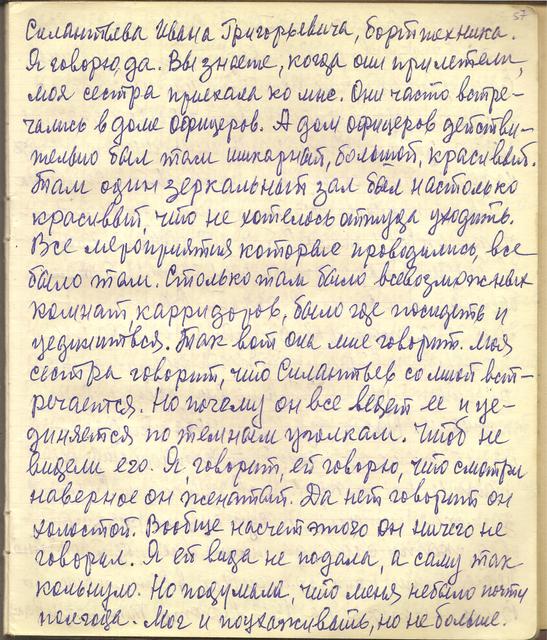 57
Силантьева Ивана Григорьевича, борттехника.
Я говорю, да. Вы знаете, когда они прилетели,
моя сестра приехала ко мне. Они часто встре-
чались в доме офицеров. А дом офицеров действи-
тельно был там шикарный, большой, красивый.
Там один зеркальный зал был настолько
красивый, что не хотелось оттуда уходить.
Все мероприятия которые проводились, все
было там. Столько там было всевозможных
комнат, карридоров, было где посидеть и
уединиться. Так вот она мне говорит. Моя
сестра говорит, что Силантьев со мной вст-
речается. Но почему он все ведет ее и уе-
диняется по темным уголкам. Чтоб не
видели его. Я, говорит, ей говорю, что смотри
наверное он женатый. Да нет говорит он
холостой. Вообще насчет этого он ничего не
говорил. Я ей вида не подала, а саму так
кольнуло. Но подумала, что меня небыло почти
полгода. Мог и поухаживать, но не больше.